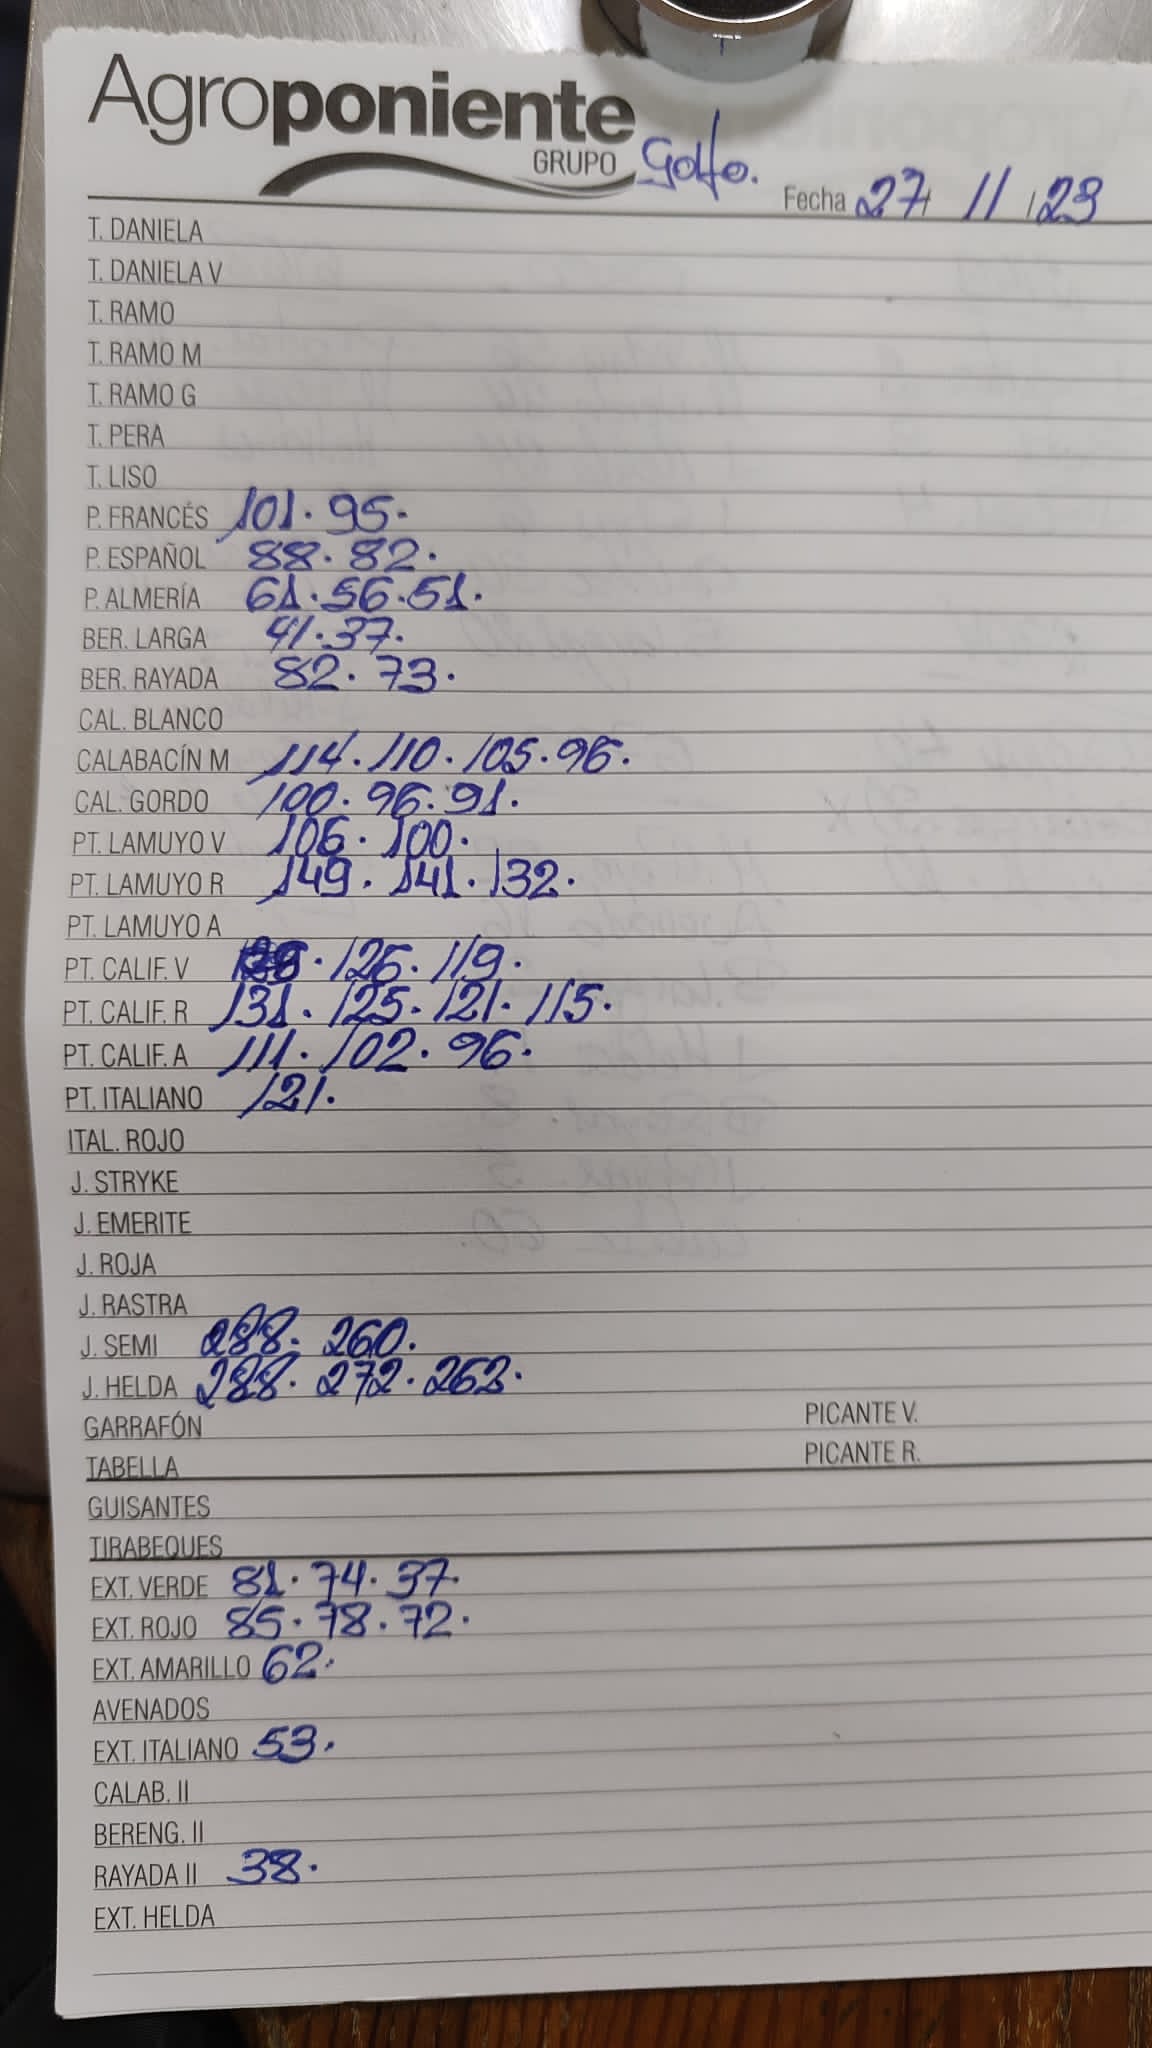 Agroponiente
GRUPO Golfo.
Fecha 27 / 11 / 23
T. DANIELA
T. DANIELA V
T. RAMO
T. RAMO M
T. RAMO G
T. PERA
T. LISO
P. FRANCÉS 101. 95.
P. ESPAÑOL 88. 82.
P. ALMERÍA 61. 56. 51.
BER. LARGA 41. 37.
BER. RAYADA 82. 73.
CAL. BLANCO
CALABACÍN M 114. 110. 105. 96.
CAL. GORDO 100. 96. 91.
PT. LAMUYO V 106. 100.
PT. LAMUYO R 149. 141. 132.
PT. LAMUYO A
PT. CALIF. V 126. 119.
PT. CALIF. R 131. 125. 121. 115.
PT. CALIF. A 111. 102. 96.
PT. ITALIANO 121.
ITAL. ROJO
J. STRYKE
J. EMERITE
J. ROJA
J. RASTRA
J. SEMI 288. 260.
J. HELDA 288. 272. 263.
GARRAFÓN PICANTE V.
TABELLA PICANTE R.
GUISANTES
TIRABEQUES
EXT. VERDE 81. 74. 37.
EXT. ROJO 85. 78. 72.
EXT. AMARILLO 62.
AVENADOS
EXT. ITALIANO 53.
CALAB. II
BERENG. II
RAYADA II 38.
EXT. HELDA